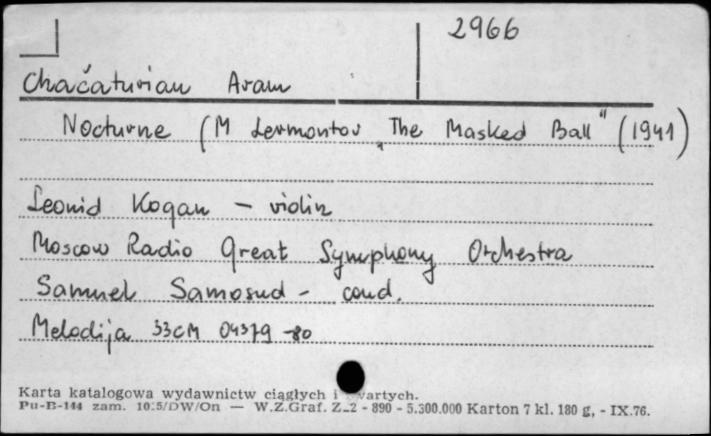 2966
Chačaturian Aram
Nocturne (M Lermontov „The Masked Ball" (1941)
Leonid Kogan - violin
Moscow Radio Great Symphony Orchestra
Samuel Samosud - cond.
Melodija 33CM 04379-80
Karta katalogowa wydawnictw ciągłych i
Pu-B-144 zam. 1035/DW/On — W.Z.Graf. Z-2 - 890 - 5.300.000 Karton 7 kl. 180 g, - IX.76.